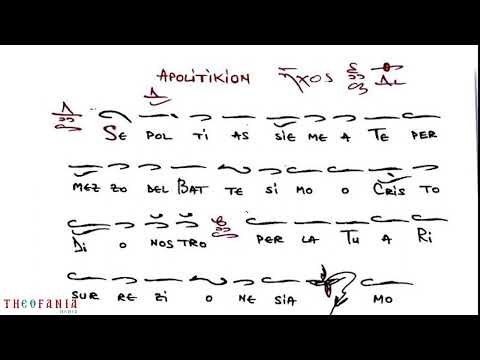 APOLITIKION ἦχος Δι
SE POL TI AS SIE ME A TE PER
MEZ ZO DEL BAT TE SI MO O CRIS TO
DI O NOSTRO PER LA TU A RI
SUR RE ZI O NE SIA MO
THEOFANIA
MEDIA